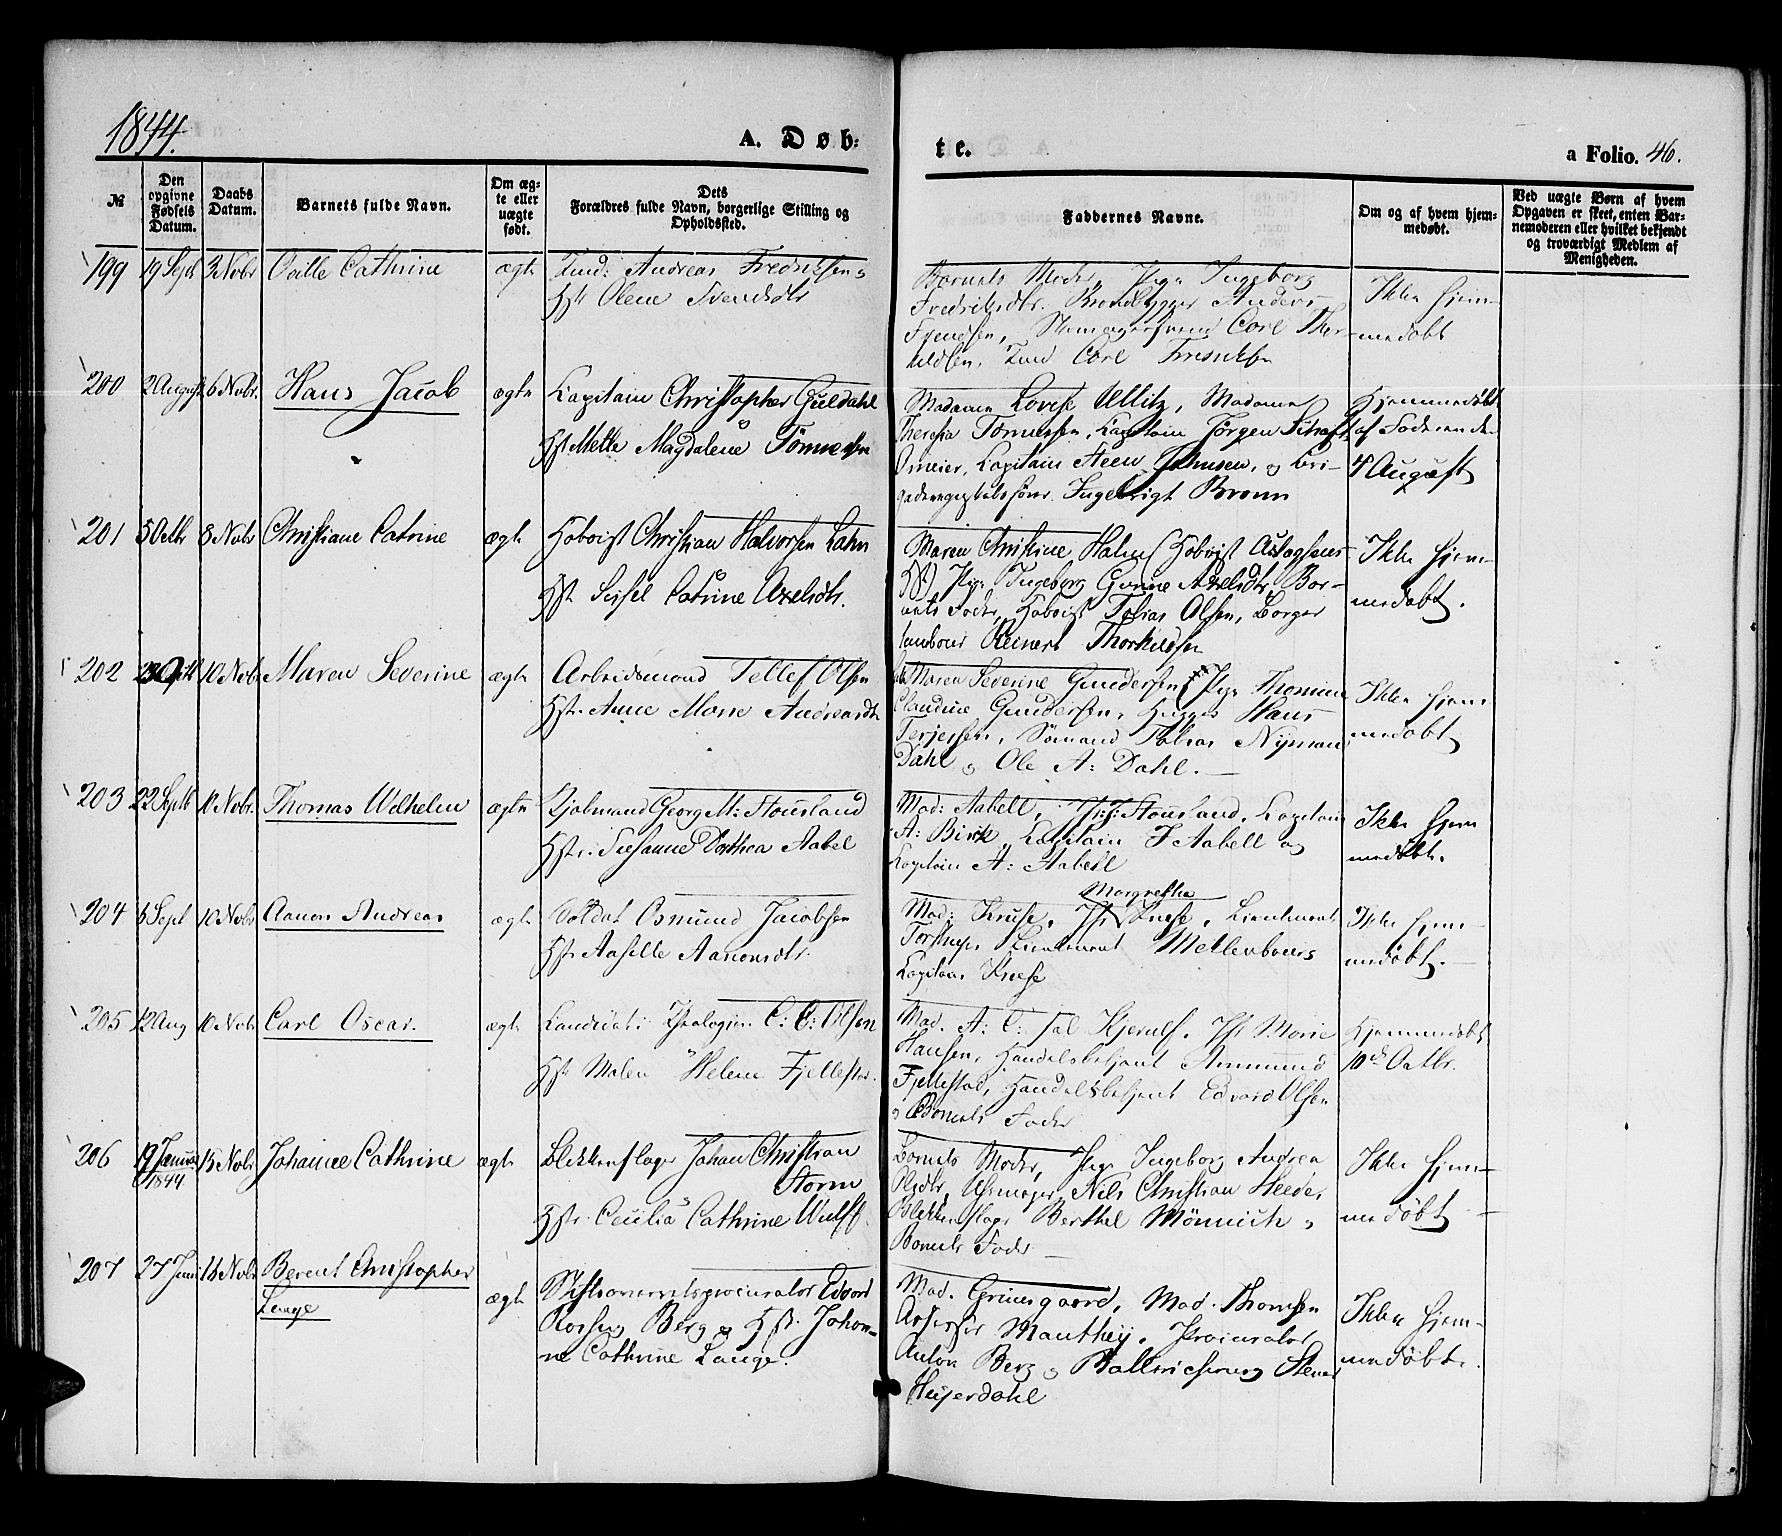 1844.
A. Døb:
te.
a Folio. 46.
№
Den opgivne Fødsels Datum.
Daabs Datum.
Barnets fulde Navn.
Om ægte eller uægte født.
Dets Forældres fulde Navn, borgerlige Stilling og Opholdssted.
Faddernes Navne.
Om og af hvem hjemmedøbt.
Ved uægte Børn af hvem Opgaven er skeet, enten Barnemoderen eller hvilket bekjendt og troværdigt Medlem af Menigheden.
199 19 Sept 3 Nobr Cathrine ægte
Andreas Fredriksen
Hst Olene Svendsdtr
Barnets Moder, Pige Ingeborg
Fredriksdtr. Anders
Carl
Carl Fredriksen
Ikke hjem-
medøbt
200 2 August 6 Nobr. Hans Jacob ægte
Kapitain Christopher Guldahl
Hst Mette Magdalene Tönnesen
Madame Lovise Ullitz, Madame
Theresia Tönnessen, Kapitain Jørgen
Kapitain Johnsen, &
Ingebrigt Bronn
Hjemmedøbt
af Faderen den
4 August
201 5 Octb 8 Nobr Christiane Catrine ægte
Hoboist Christian Halvorsen Holm
Hst. Sissel Catrine Axelsdtr.
Maren Christine Holm (Hoboist Aslagsens
Hst) Pige Ingeborg Gurine Axelsdtr, Bar-
nets Fader, Hoboist Tobias Olsen, Borger
tambour Reinert Thorkildsen
Ikke hjem-
medøbt.
202 10 Nobr Maren Severine ægte
Arbeidsmand Tellef Olsen
Hst. Anne Marie Andreasdtr
Maren Severine Gundersen, Pige Thomine
Claudine Gundersen, Hans
Terjessen, Sömand Tobias Nyman
Dahl & Ole A: Dahl.
Ikke hjem
medøbt
203 22 Septb 10 Nobr. Thomas Wilhelm ægte
Georg M: Stousland
Hstr. Susanne Dorthea Aabel
Mad: Aabell, Stousland, Kapitain
A: Birk, Kapitain J Aabell og
Kapitain A: Aabell
Ikke hjem
medøbt.
204 8 Sept 10 Nobr Aanon Andreas ægte
Soldat Osmund Jacobsen
Hst. Aaselle Aanonsdtr.
Margrethe
Mad: Kruse, Jfr Kruse, Lieutenant
Lieutenant Mellenbourg
Kapitain Kruse
Ikke hjem-
medøbt.
205 12 Aug 10 Nobr Carl Oscar. ægte
Candidat: Theologiæ. C: C: Olsen
Hst Malen Helene Fjellestad.
Mad. A: C: Jfr Marie
Hansen, Handelsbetjent Ammund
Fjellestad, Handelsbetjent Edvard Olsen
& Barnets Fader
Hjemmedøbt
10de Octbr.
206 19 Januar 1844 15 Nobr Johanne Cathrine ægte
Blikkenslager Johan Christian
Storm
Hstr. Cecilia Cathrine Wulff
Barnets Moder, Pige Ingeborg Andrea
Uhrmager, Nils Christian
Blikkenslager Berthel Mönnich &
Barnets Fader
Ikke hjem-
medøbt
207 27 Juni 18 Nobr Berent Christopher
Lange ægte
Stiftsoverretsprocurator Edvard
Rosing Berg & Hst. Johan-
ne Cathrine Lange.
Mad. Grimsgaard, Mad. Thomsen
Assessor Manthey, Procurator
Anton Berg &
Heyerdahl
Ikke hjem-
medøbt.